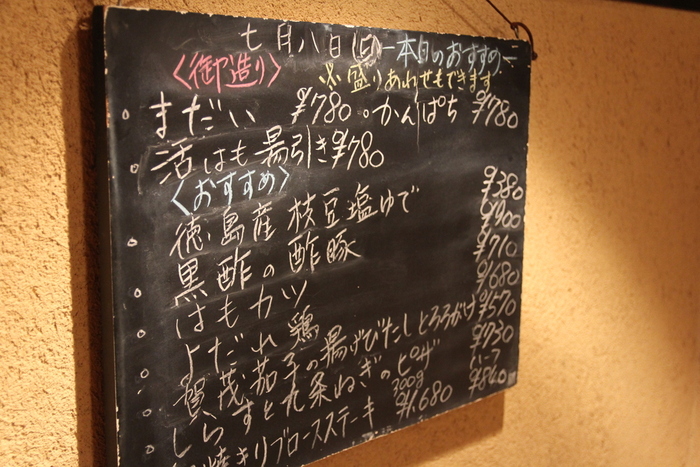 七月八日(日) 本日のおすすめ
〈御造り〉 ※盛りあわせもできます
。まだい ¥780 。かんぱち ¥780
。活はも湯引き ¥780
〈おすすめ〉
。徳島産枝豆塩ゆで ¥380
。黒酢の酢豚 ¥900
。はもカツ ¥710
。よだれ鶏 ¥680
。賀茂茄子の揚げびたしとろろがけ ¥570
。しらすと九条ねぎのピザ ¥730
焼きリブロースステーキ 300g ¥1,680 ハーフ ¥840